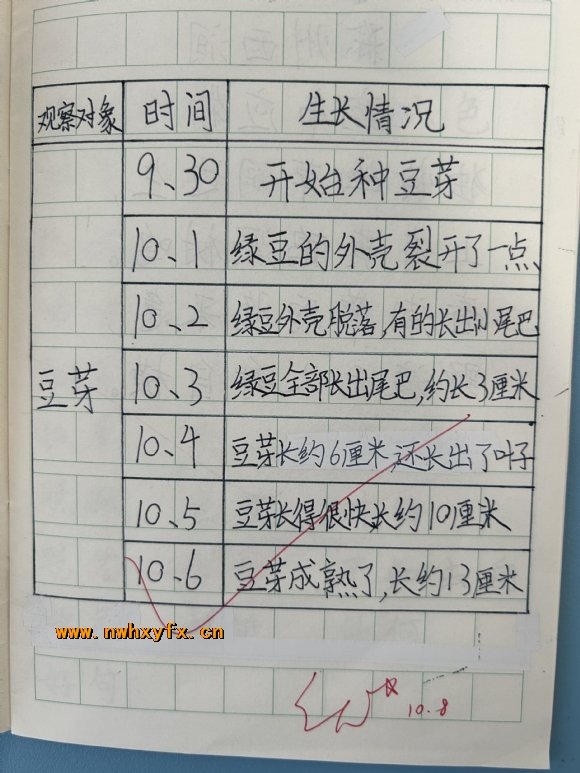 观察对象 时间 生长情况
9、30 开始种豆芽
10、1 绿豆的外壳裂开了一点
10、2 绿豆外壳脱落,有的长出小尾巴
豆芽 10、3 绿豆全部长出尾巴,约长3厘米
10、4 豆芽长约6厘米,还长出了叶子
10、5 豆芽长得很快,长约10厘米
10、6 豆芽成熟了,长约13厘米
www.nwhxyfx.cn
10.8